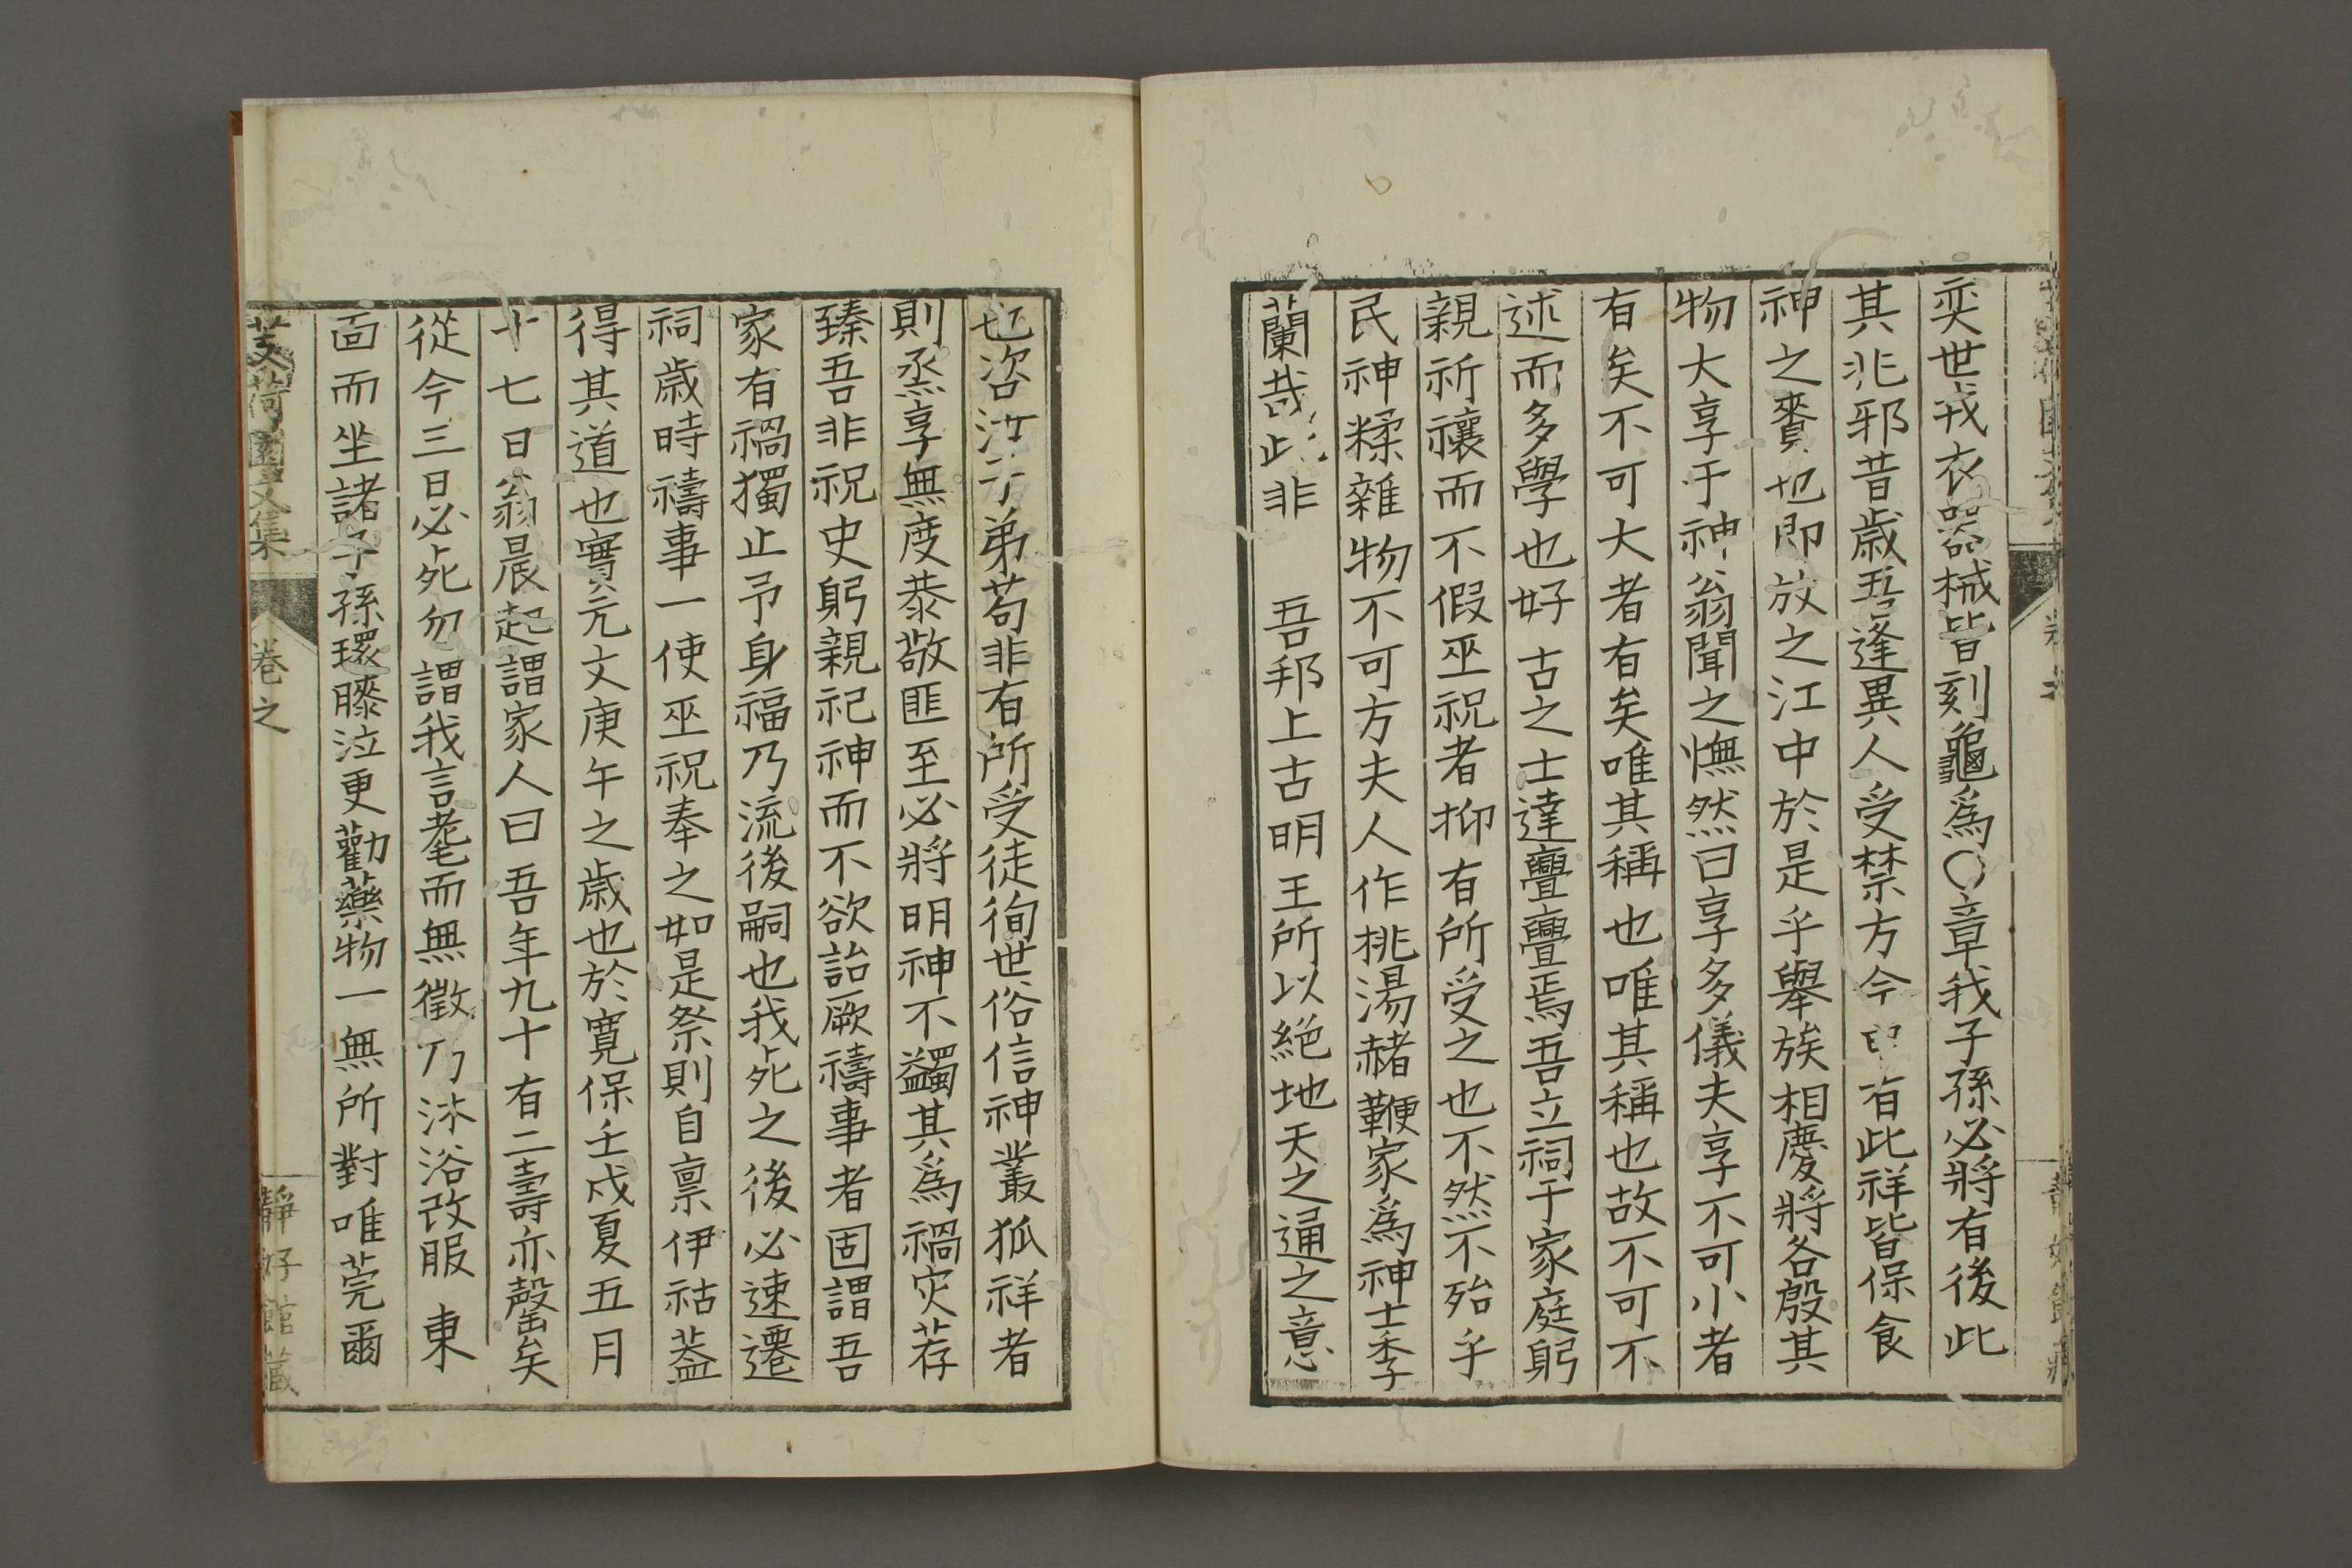 奕世我衣器械皆刻龜爲〇章我子孫必將有後此
其兆邪昔歲吾逢異人受禁方今有此祥皆保食
神之賚也即放之江中於是乎舉族相慶將各殷其
物大享于神翁聞之憮然曰享多儀夫享不可小者
有矣不可大者有矣唯其稱也唯其稱也故不可不
述而多學也好古之士達亹亹焉吾立祠于家庭躬
親祈禳而不假巫祝者抑有所受之也不然不殆乎
民神糅雜物不可方夫人作桃湯赭鞭家爲神士季
蘭哉此非 吾邦上古明王所以絶地天之通之意
也咨汝子弟苟非有所受徒徇世俗信神叢狐祥者
則烝享無度恭敬匪至必將明神不蠲其爲禍灾荐
臻吾非祝史躬親祀神而不欲詒厥禱事者固謂吾
家有禍獨止予身福乃流後嗣也我死之後必速遷
祠歲時禱事一使巫祝奉之如是祭則自禀伊祜葢
得其道也實元文庚午之歲也於寬保壬戌夏五月
十七日翁晨起謂家人曰吾年九十有二壽亦罄矣
從今三日必死勿謂我言耄而無徵乃沐浴改服東
面而坐諸子孫環膝泣更勸藥物一無所對唯莞爾
芰荷園文集 卷之 靜好館藏